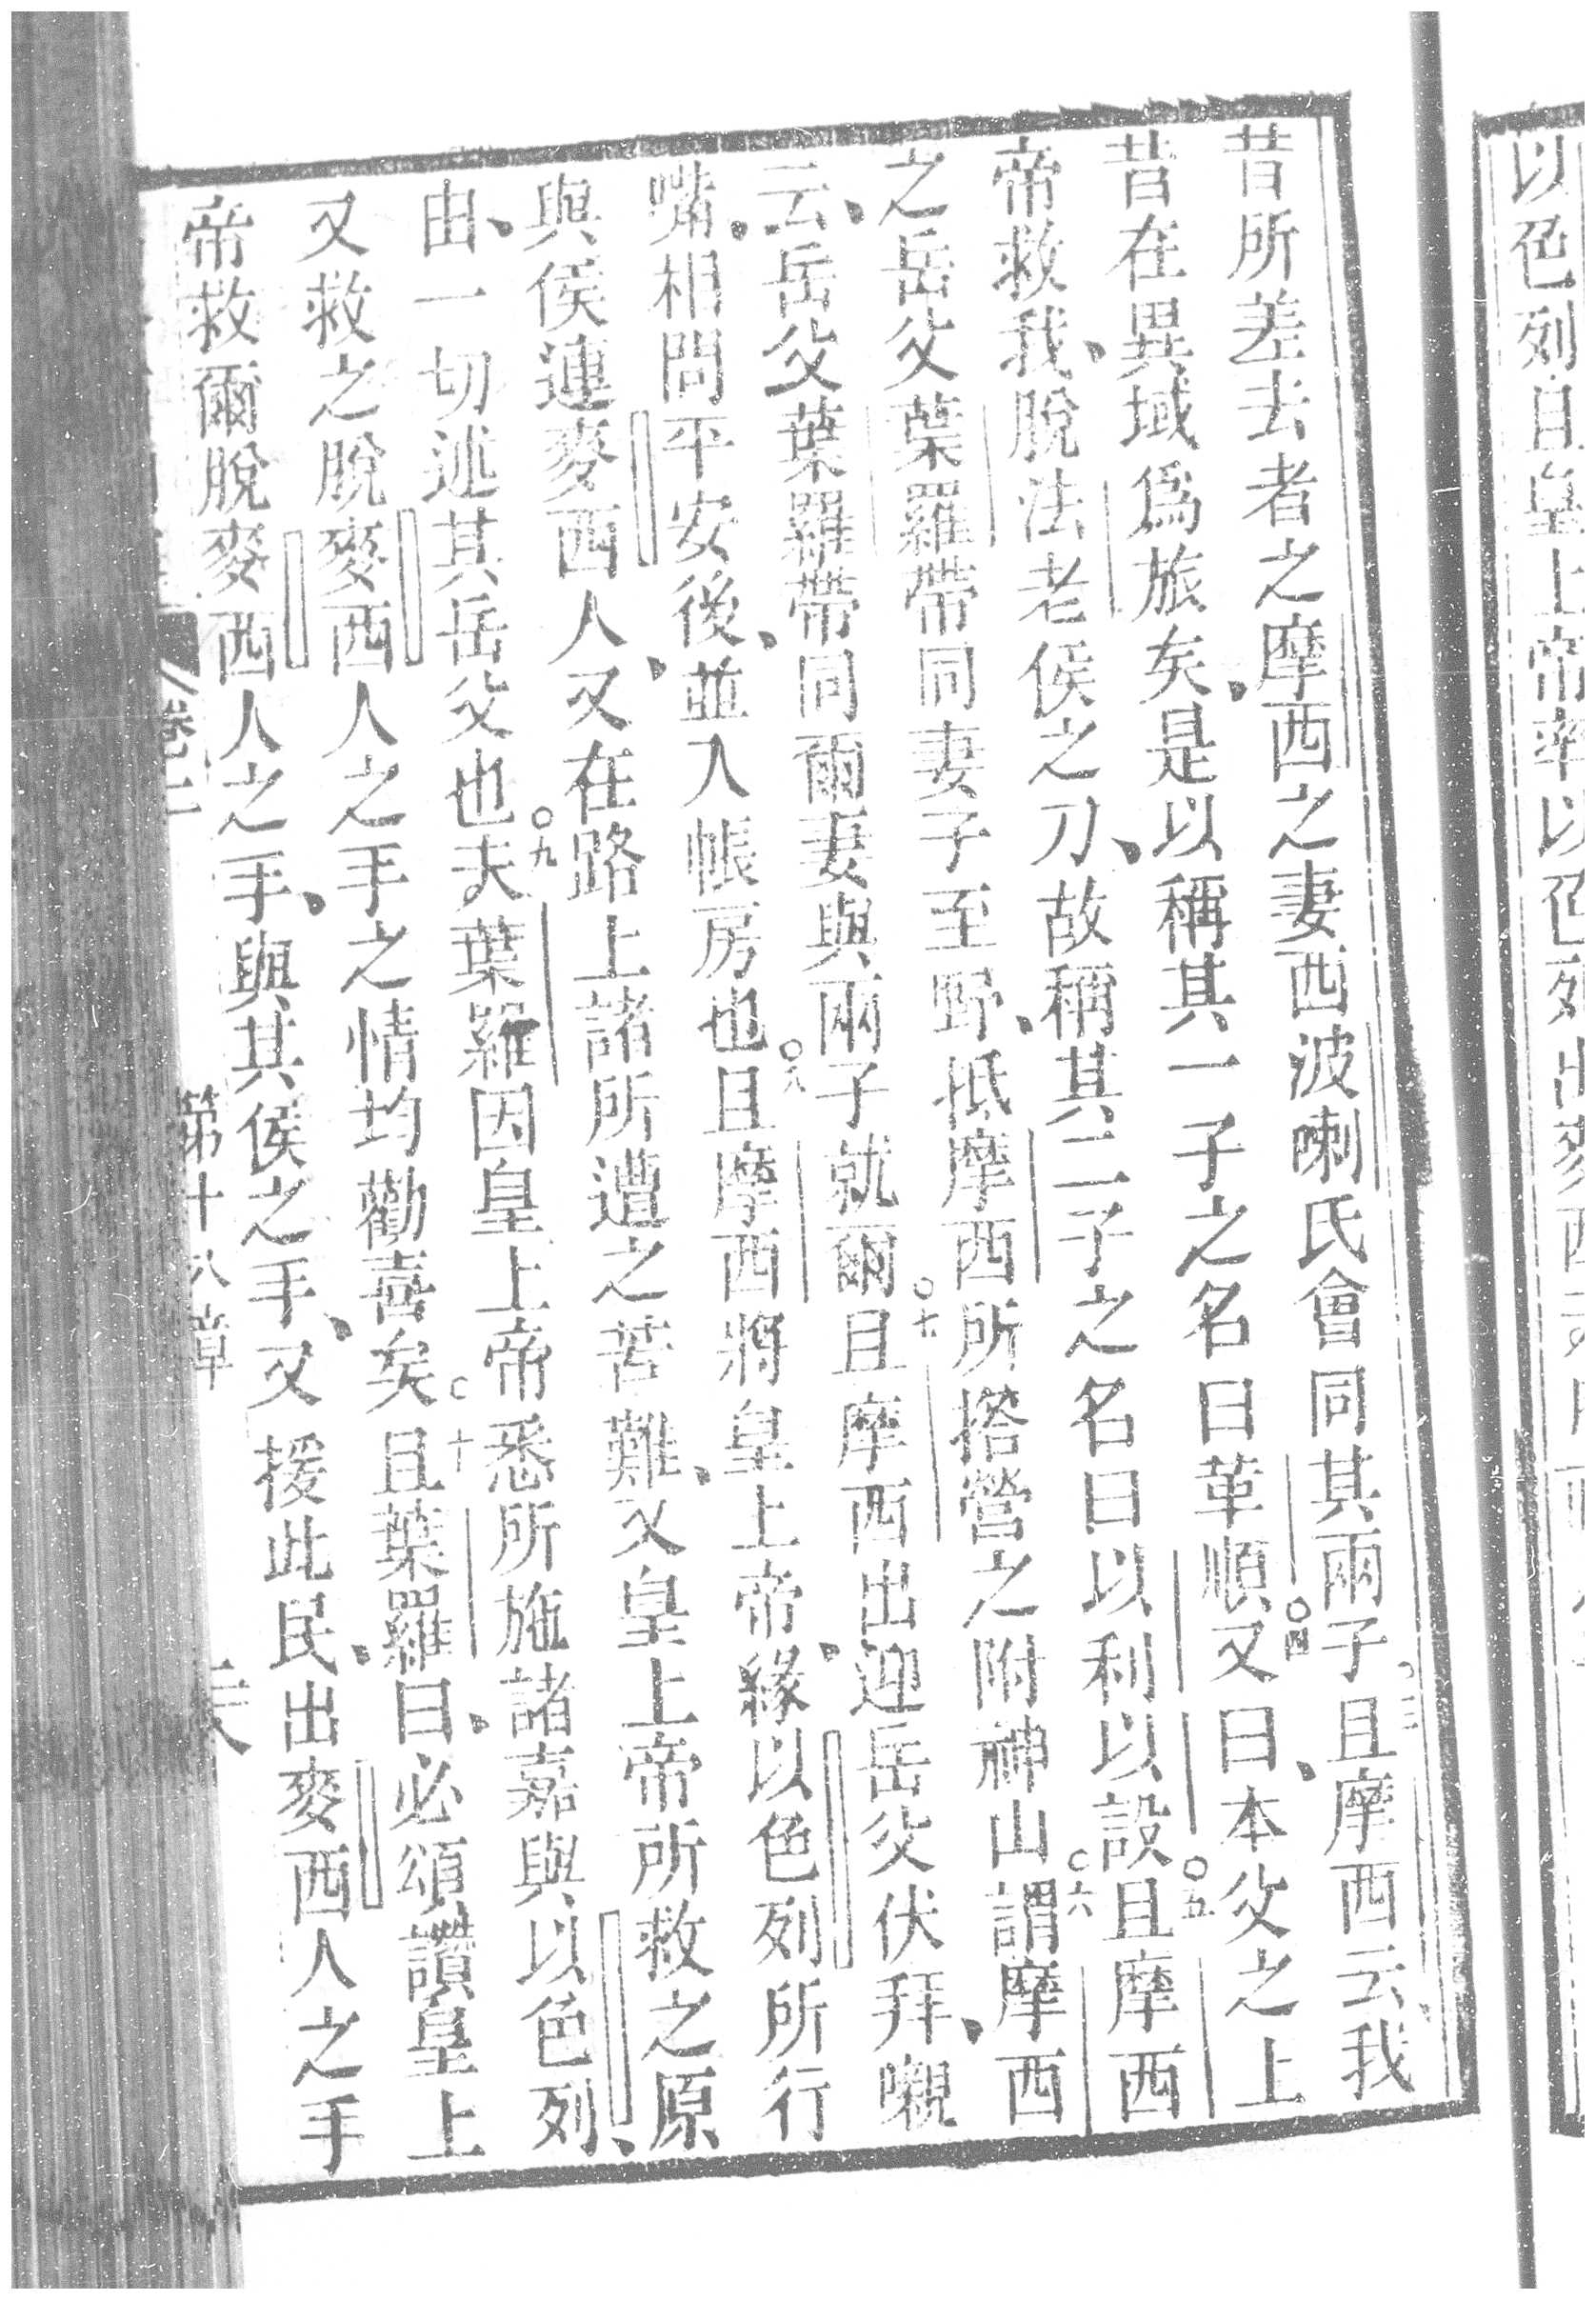 以色列且皇上帝率以色列出麥西
昔所差去者之摩西之妻西波喇氏會同其兩子○三且摩西云、我
昔在異域爲旅矣、是以稱其一子之名曰革順○四又曰、本父之上
帝救我、脫法老侯之刀、故稱其二子之名曰以利以設○五且摩西
之岳父葉羅帶同妻子至野、抵摩西所搭營之附神山○六謂摩西
云、岳父葉羅帶同爾妻與兩子就爾○七且摩西出迎岳父伏拜、嚫
嘴、相問平安後、並入帳房也○八且摩西將皇上帝、緣以色列所行
與侯連麥西人、又在路上諸所遭之苦難、又皇上帝所救之原
由、一切述其岳父也○九夫葉羅因皇上帝悉所施諸嘉與以色列、
又救之脫麥西人之手之情均勸喜矣○十且葉羅曰、必頌讚皇上
帝救爾脫麥西人之手、與其侯之手、又援此民、出麥西人之手
卷二 第十八章